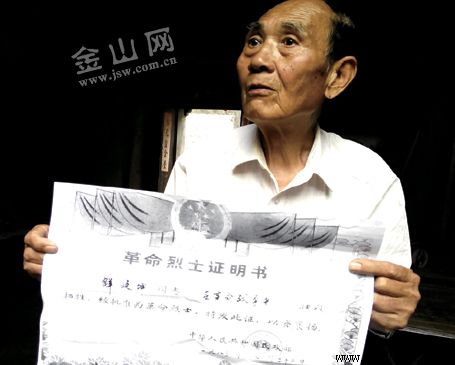 金山网
www.jsw.com.cn
革命烈士证明书
同志
牺牲,经批准为革命烈士,特发此证,以资褒扬。
中华人民共和国民政部
www